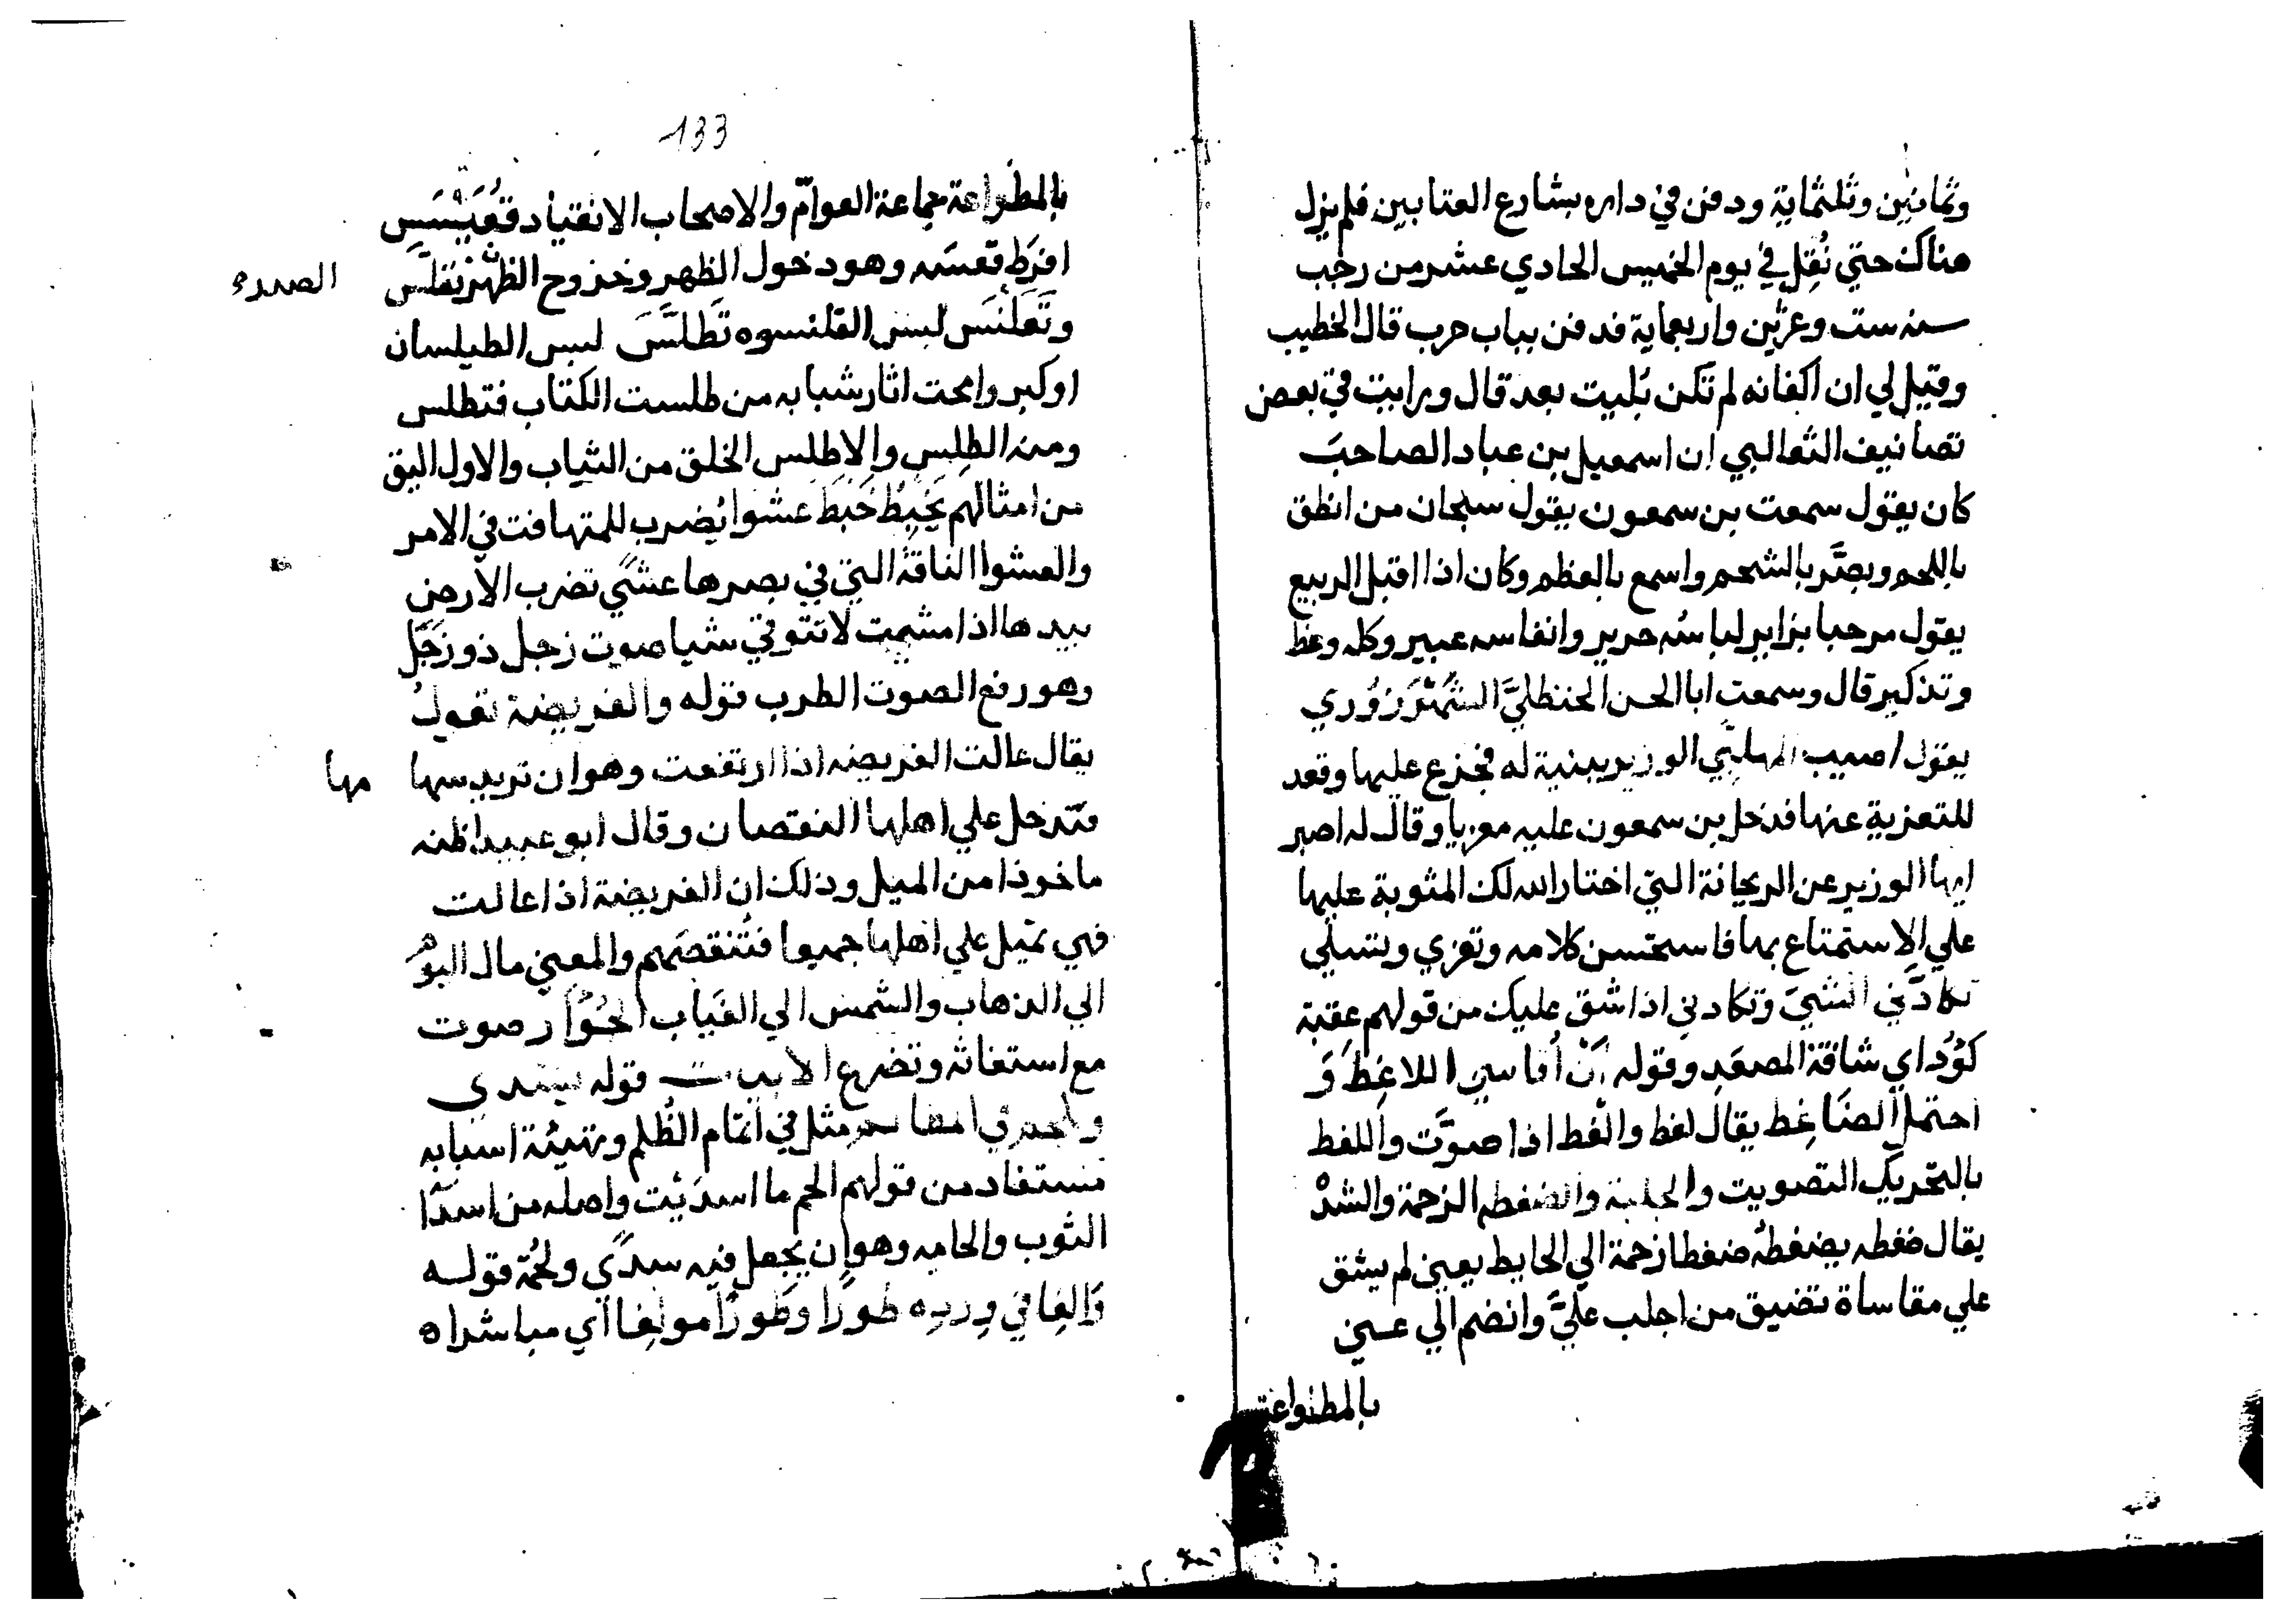 وثمانين وثلثماية ودفن في داره بشارع العتابين فلم يزل
هناك حتي نُقِل في يوم الخميس الحادي عشر من رجب
سنه ست وعرين واربعماية فدفن بباب حرب قال الخطيب
وقيل لي ان اكفانه لم تكن بُليت بعد قال ورايت في بعض
تصانيف الثعالبي ان اسمعيل بن عباد الصاحب
كان يقول سمعت بن سمعون يقول سبحان من انطق
باللحم وبصَّر بالشحم واسمع بالعظم وكان اذا اقبل الربيع
يقول مرحبا بزاير لباسُه حرير وانفاسه عبير وكله وعظ
وتذكير قال وسمعت ابا الحسن الحنظليَّ الشَهْرَزُوري
يقول اصيب المهلبي الوزير ببنية له فجزع عليها وقعد
للتعزية عنها فدخل بن سمعون عليه معزيا وقال له اصبر
ايها الوزير عن الريحانة التي اختار الله لك المثوبة عليها
علي الاستمتاع بها فاستحسن كلامه وتعزي وتسلي
تكادَّني الشيَ وتكادني اذا شق عليك من قولهم عقبة
كَوُد اي شاقة المصعَدِ وقوله اَنْ اُقاسي اللاغِطَ وَ
احتمل الضَاغِط يقال لغط والغط اذا صوَّت واللغط
بالتحريك التصويت والجلبة والضغطه الزحمة والشدْ
يقال ضغطه يضغطُه ضغطا زحمة الي الحايط يعني لم يشق
علي مقاساة تضيق من اجلب عليَّ وانضم الي عين
بالمطواعة
133
بالمطواعة جماعة العوامّ والاصحاب الانقياد قعَيْسَس
افرَط قعسَه وهو دخول الظهر وخروج الظهْر تقلَّس الصدر
وتَقَلْنَس لبس القلنسوه تَطَلَّسَ لبس الطيلسان
او كبر وامحت اثار شبابه من طلست الكتاب فتطلس
ومنه الطِلِس والاطلس الخلق من الثياب والاول اليق
من امثالهم يَخبِطُ خَبطَ عَشوا يُضرب للمتهافت في الامر
والعشوا الناقةُ التي في بصرها عشًي تضرب الارض
بيدها اذا مشيت لا تتوقي شيا صوت زجل ذو زَجَل
وهو رفع الصوت الطرب قوله والفريضة تعولُ
يقال عالت الفريضه اذا ارتفعت وهو ان تزيد سها مها
فتدخل علي اهلها النقصان وقال ابو عبيد اظنه
ماخوذا من الميل وذلك ان الفريضة اذا عالت
فهي تميل علي اهلها جميعا فتُنقصَهم والمعني مال اليوْمُ
الي الذهاب والشمس الي الغَياب الجُؤَار صوت
مع استغاثه وتضرع الابيات قوله يسدي
مثل في اتمام الظُلم وتهيئة اسبابه
مستفاد من قولهم الحم ما اسدَيْت واصله من اسدَا
الثوب والحامه وهو ان يجعل فيه سدًي ولُحمة قوله
وَالِغا في وِردِه طَورًا وطَورًا مولِغا اي مباشراه